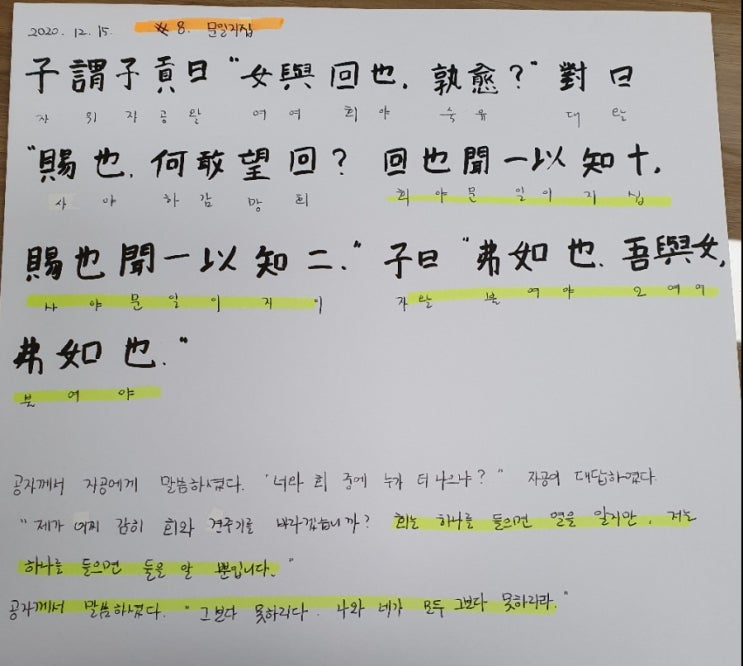 2020. 12. 15. #8. 문일지십
子謂子貢曰 "女與回也, 孰愈?" 對曰
자 위 자 공 왈 여 여 회 야 숙 유 대 왈
"賜也, 何敢望回? 回也聞一以知十,
사 야 하 감 망 회 회 야 문 일 이 지 십
賜也聞一以知二." 子曰 "弗如也. 吾與女,
사 야 문 일 이 지 이 자 왈 불 여 야 오 여 여
弗如也."
불 여 야
공자께서 자공에게 말씀하셨다. "너와 회 중에 누가 더 나으냐?" 자공이 대답하였다.
"제가 어찌 감히 회와 견주기를 바라겠습니까? 회는 하나를 들으면 열을 알지만, 저는
하나를 들으면 둘을 알 뿐입니다."
공자께서 말씀하셨다. "그보다 못하리다. 나와 네가 모두 그보다 못하리라."